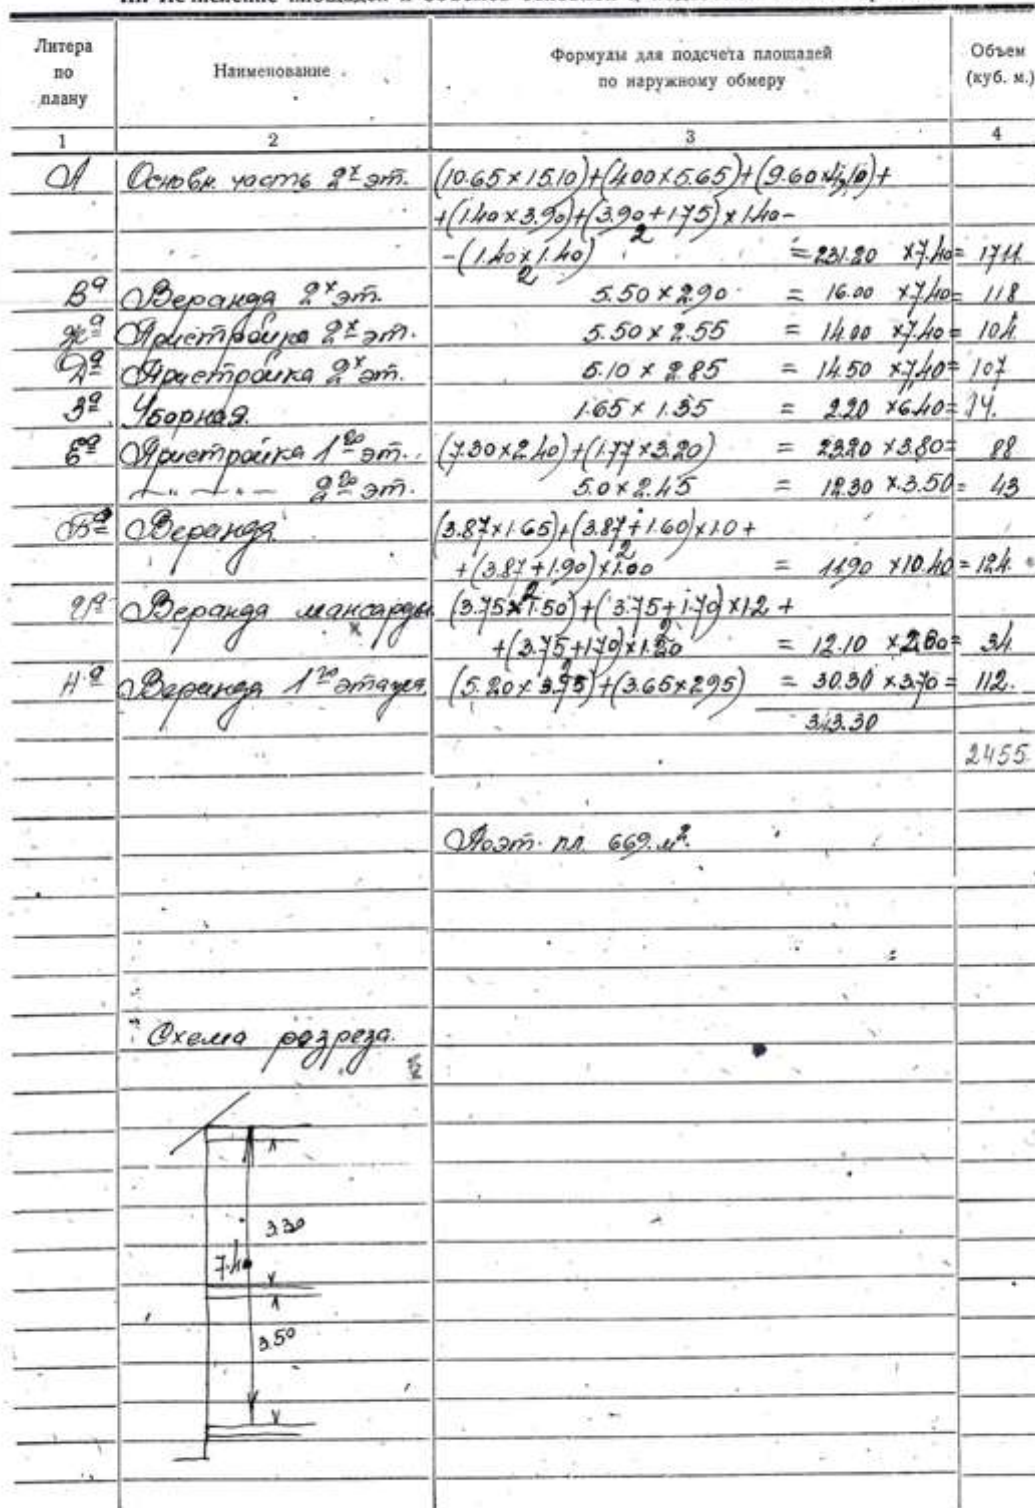 Литера по плану
Наименование
Формулы для подсчета площадей по наружному обмеру
Объем (куб. м.)
1 2 3 4
А Основн. часть 2х эт. (10.65 x 15.10)+(4.00 x 5.65)+(9.60 x 4.10)+
+(1.40 x 3.90)+(3.90+1.75) x 1.40-
2
-(1.40 x 1.40) = 231.20 x 7.40 = 1711
2
Ва Веранда 2х эт. 5.50 x 2.90 = 16.00 x 7.40 = 118
Жа Пристройка 2х эт. 5.50 x 2.55 = 14.00 x 7.40 = 104
Да Пристройка 2х эт. 5.10 x 2.85 = 14.50 x 7.40 = 107
За Уборная. 1.65 x 1.35 = 2.20 x 6.40 = 14.
Еа Пристройка 1го эт. (7.30 x 2.40)+(1.77 x 3.20) = 23.20 x 3.80 = 88
— " — " — 2го эт. 5.0 x 2.45 = 12.30 x 3.50 = 43
Ба Веранда (3.87 x 1.65)+(3.87+1.60) x 1.0 +
2
+(3.87+1.90) x 1.00 = 11.90 x 10.40 = 124.
2
Веранда мансарды (3.75 x 1.50)+(3.75+1.70) x 1.2 +
2
+(3.75+1.70) x 1.20 = 12.10 x 2.80 = 34
2
На Веранда 1го этажа (5.20 x 3.75)+(3.65 x 2.95) = 30.30 x 3.70 = 112.
343.30
2455.
Поэт. пл. 669. м2.
Схема разреза.
3.30
7.40
3.50